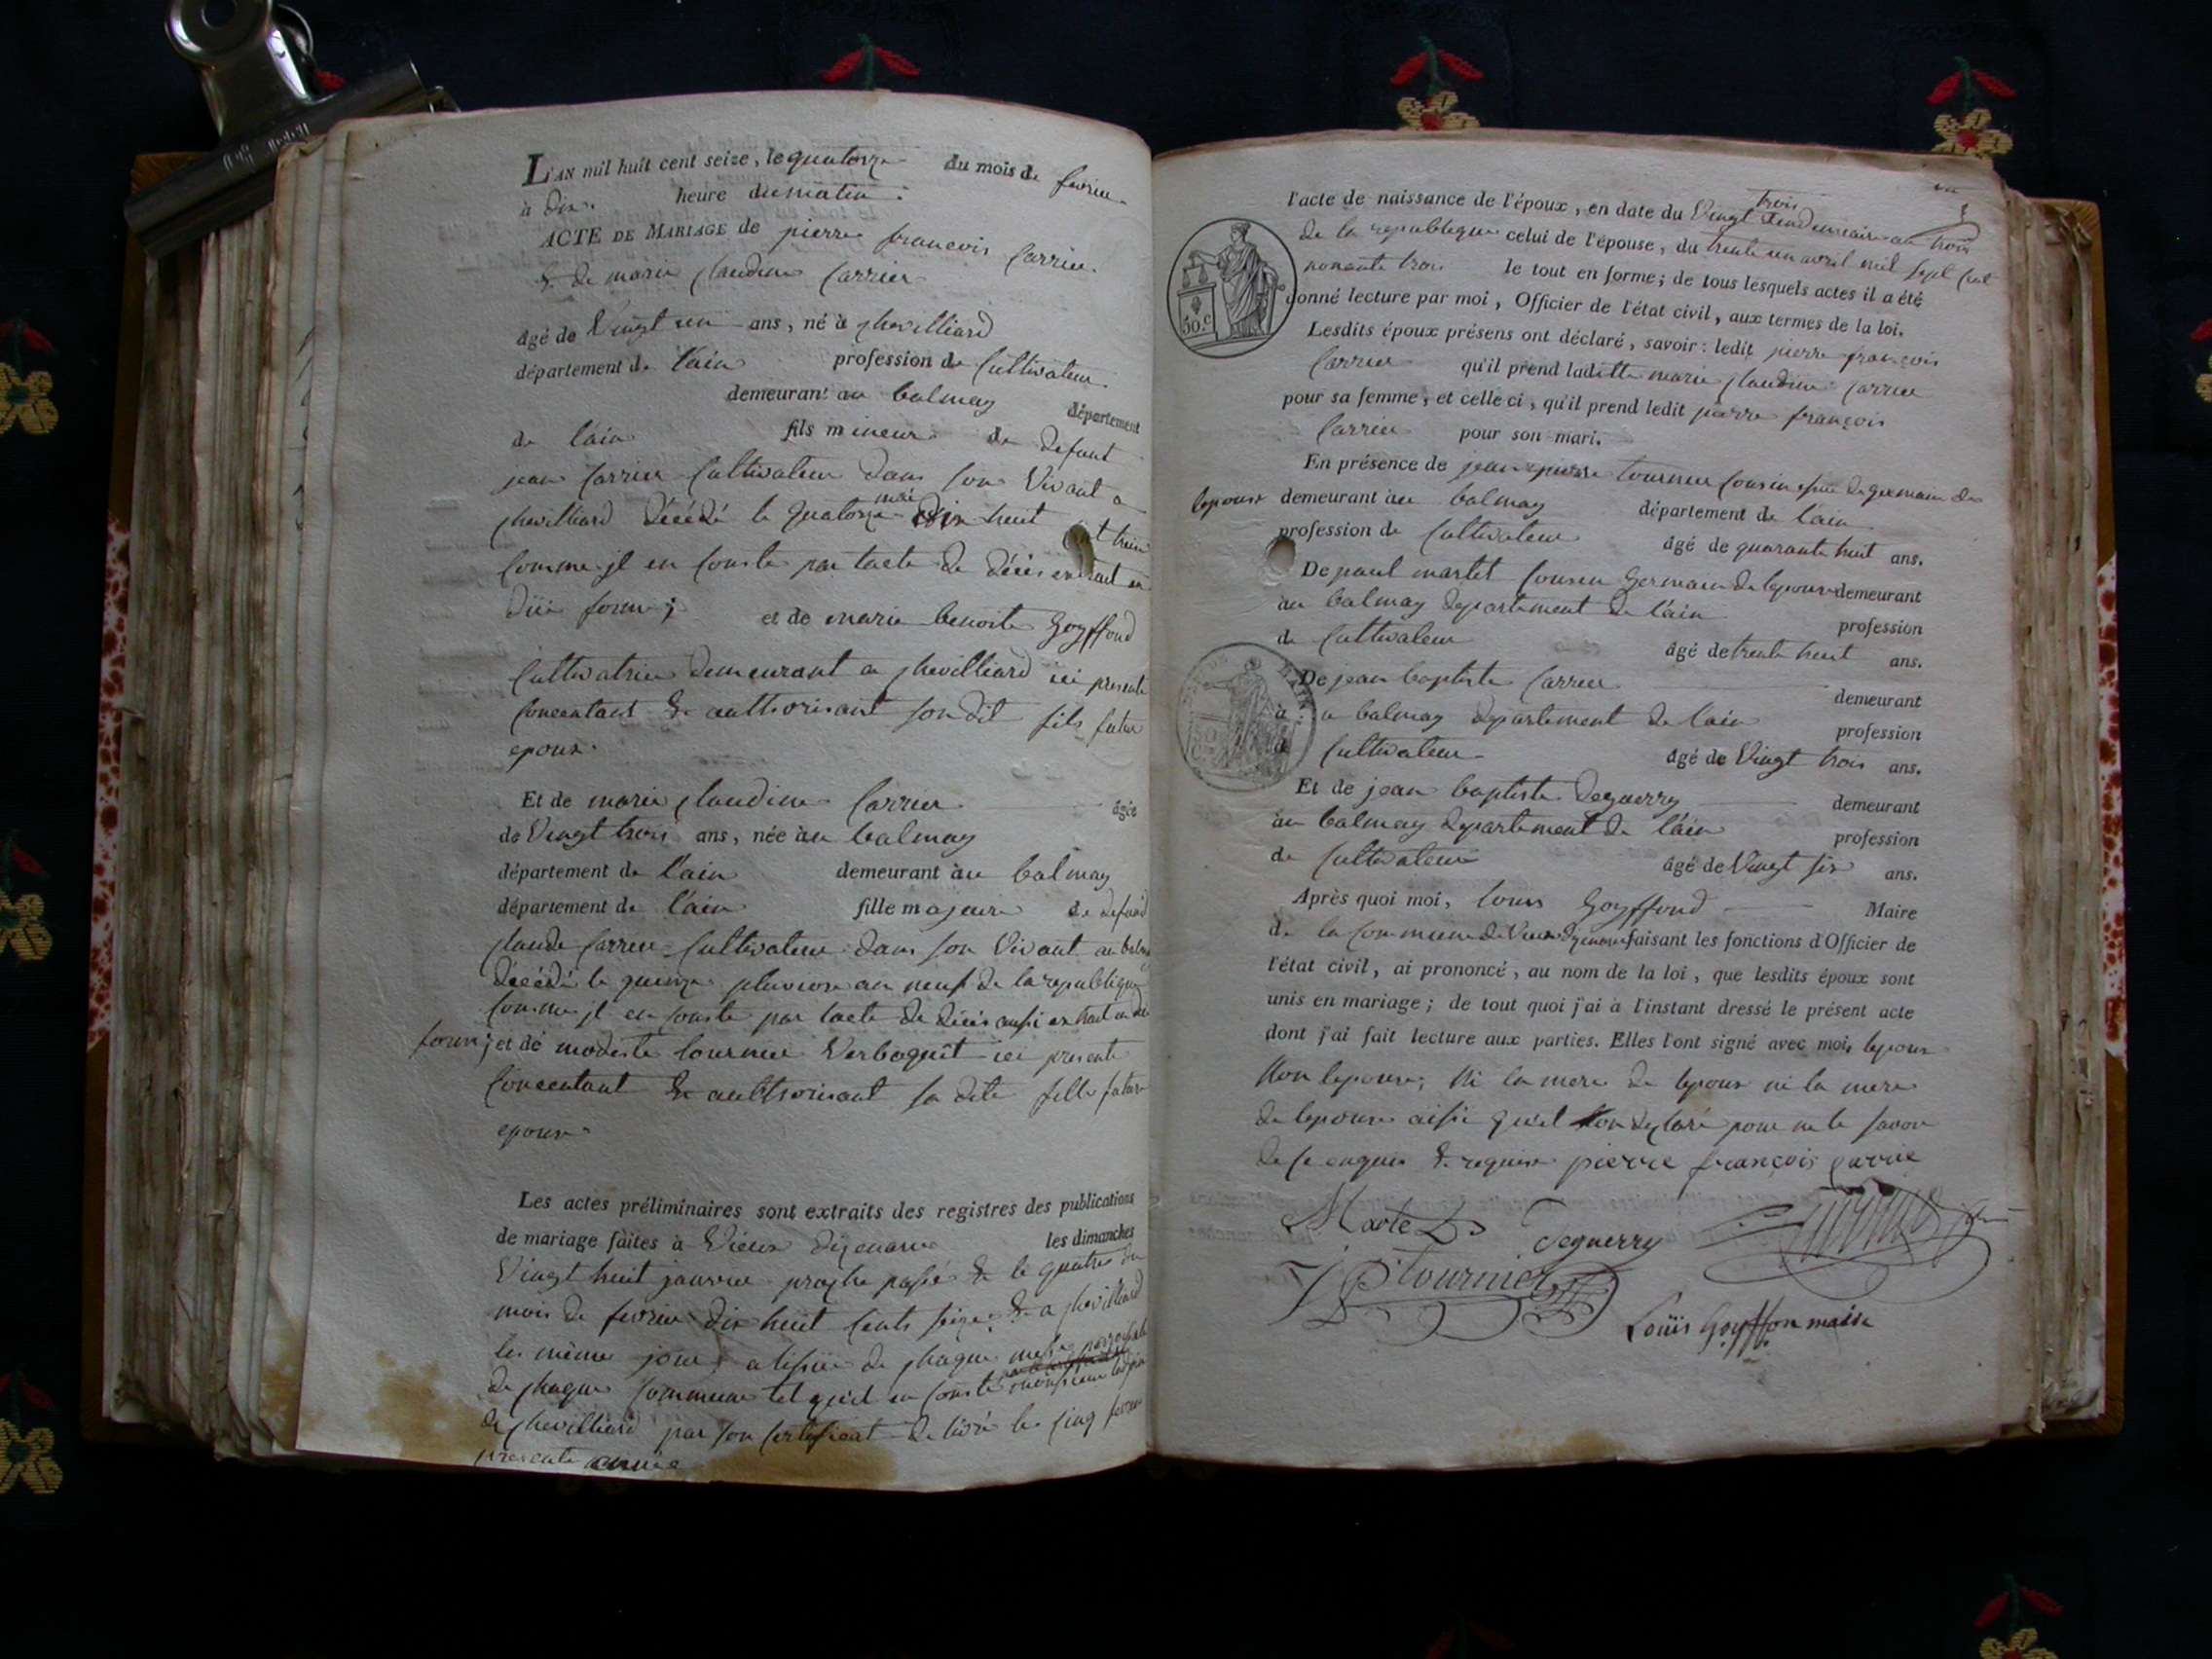 L'AN mil huit cent seize, le quatorze du mois de fevrier
à dix heure du matin.
ACTE DE MARIAGE de pierre francois Carrier
& de marie Claudine Carrier
âgé de Vingt un ans, né à chevilliard
département de l'ain profession de Cultivateur.
demeurant au balmay département
de l'ain fils mineur de defunt
jean Carrier Cultivateur dans son Vivant a
chevilliard décédé le quatorze mai dix huit cent treize
Comme jl en Conste par l'acte de décès extrait en
düe forme; et de marie benoite Goyffond
Cultivatrice demeurant a chevilliard ici presente
Concentant & authorisant son dit fils futur
epoux.
Et de marie Claudine Carrier âgée
de Vingt trois ans, née à au balmay
département de l'ain demeurant à au balmay
département de l'ain fille majeure de defund
Claude Carrier Cultivateur dans son Vivant au balmay
décédé le quinze pluviose an neuf de la republique
Comme jl en Conste par l'acte de décès aussi extrait en düe
forme; et de modeste tournier Verboquit ici presente
Concentant & authorisant sa dite fille future
epouse.
Les actes préliminaires sont extraits des registres des publications
de mariage faites à Vieux Dizenave les dimanches
Vingt huit janvier proche passé & le quatre du
mois de fevrier dix huit Cents seize & a chevilliard
les même jour, a l'issüe de chaque messe parroissiale
de chaque Commune tel qu'il en Conste
de chevilliard par son Certificat delivré le Cinq fevrier
presente année
l'acte de naissance de l'époux, en date du Vingt trois Vendemiaire an trois
de la republique celui de l'épouse, du trente un avril mil sept Cent
nonante trois le tout en forme; de tous lesquels actes il a été
donné lecture par moi, Officier de l'état civil, aux termes de la loi.
Lesdits époux présens ont déclaré, savoir: ledit pierre françois
Carrier qu'il prend ladite marie Claudine Carrier
pour sa femme, et celle ci, qu'il prend ledit pierre françois
Carrier pour son mari.
En présence de jean pierre tournier Cousin issue de germain de
lepouse demeurant à au balmay département de l'ain
profession de Cultivateur âgé de quarante huit ans.
De paul martet Cousin Germain de lepouse demeurant
au balmay departement de l'ain profession
de Cultivateur âgé de trente huit ans.
De jean baptiste Carrier demeurant
à au balmay departement de l'ain profession
de Cultivateur âgé de Vingt trois ans.
Et de jean baptiste Deguerry demeurant
au balmay departement de l'ain profession
de Cultivateur âgé de Vingt six ans.
Après quoi moi, Louis Goyffond Maire
de la Commune de Vieux faisant les fonctions d'Officier de
l'état civil, ai prononcé, au nom de la loi, que lesdits époux sont
unis en mariage; de tout quoi j'ai à l'instant dressé le présent acte
dont j'ai fait lecture aux parties. Elles l'ont signé avec moi, lepoux
Non lepouse, Ni la mere de lepoux ni la mere
de lepouse aissi qu'el lon declaré pour ne le savoir
de ce enquis & requise pierre françois carrie
Martet Deguerry
JP Tournier
Loüis Goyffon maire
50.c